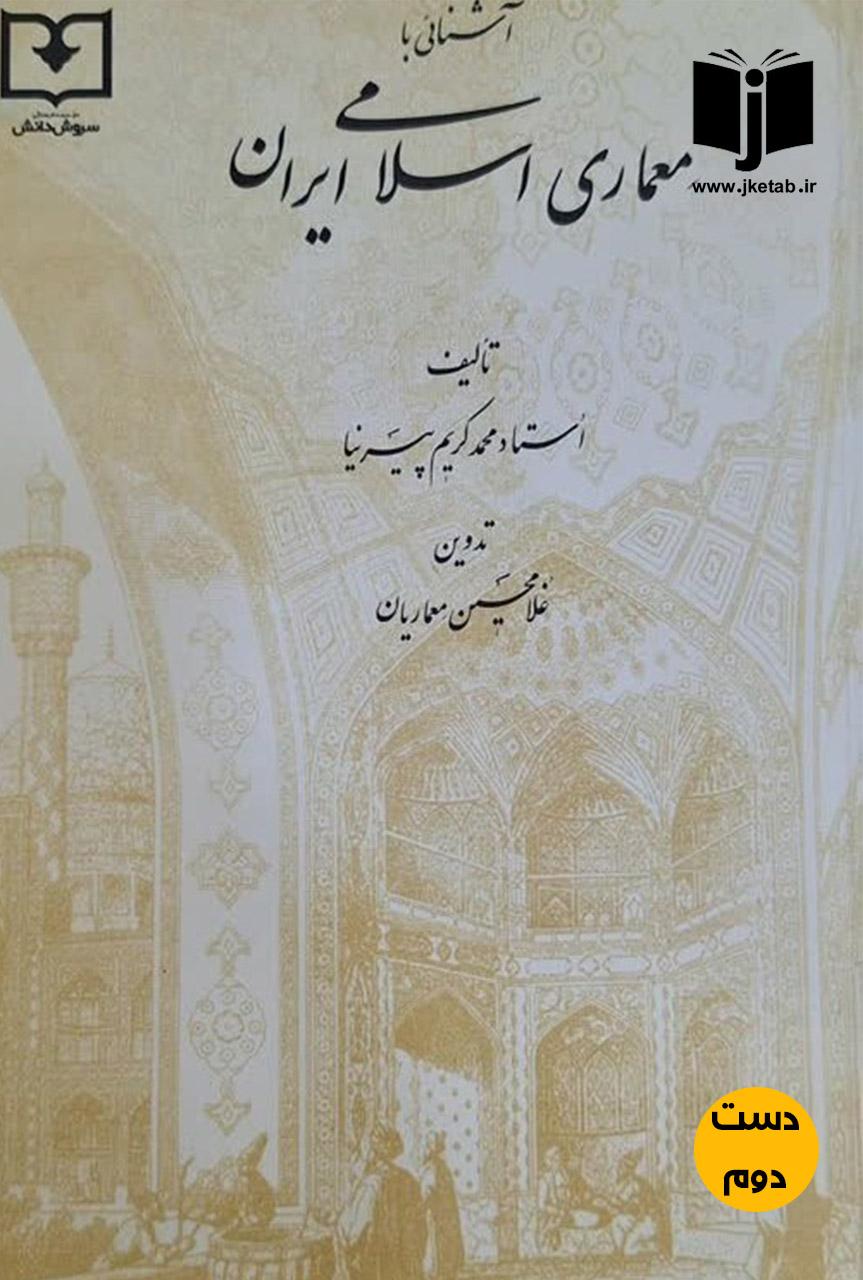 آشنائی با
معماری اسلامی ایران
تألیف
اُستاد محمد کریم پیرنیا
تدوین
غلامحسین معماریان
سروش دانش
j
www.jketab.ir
دست
دوم